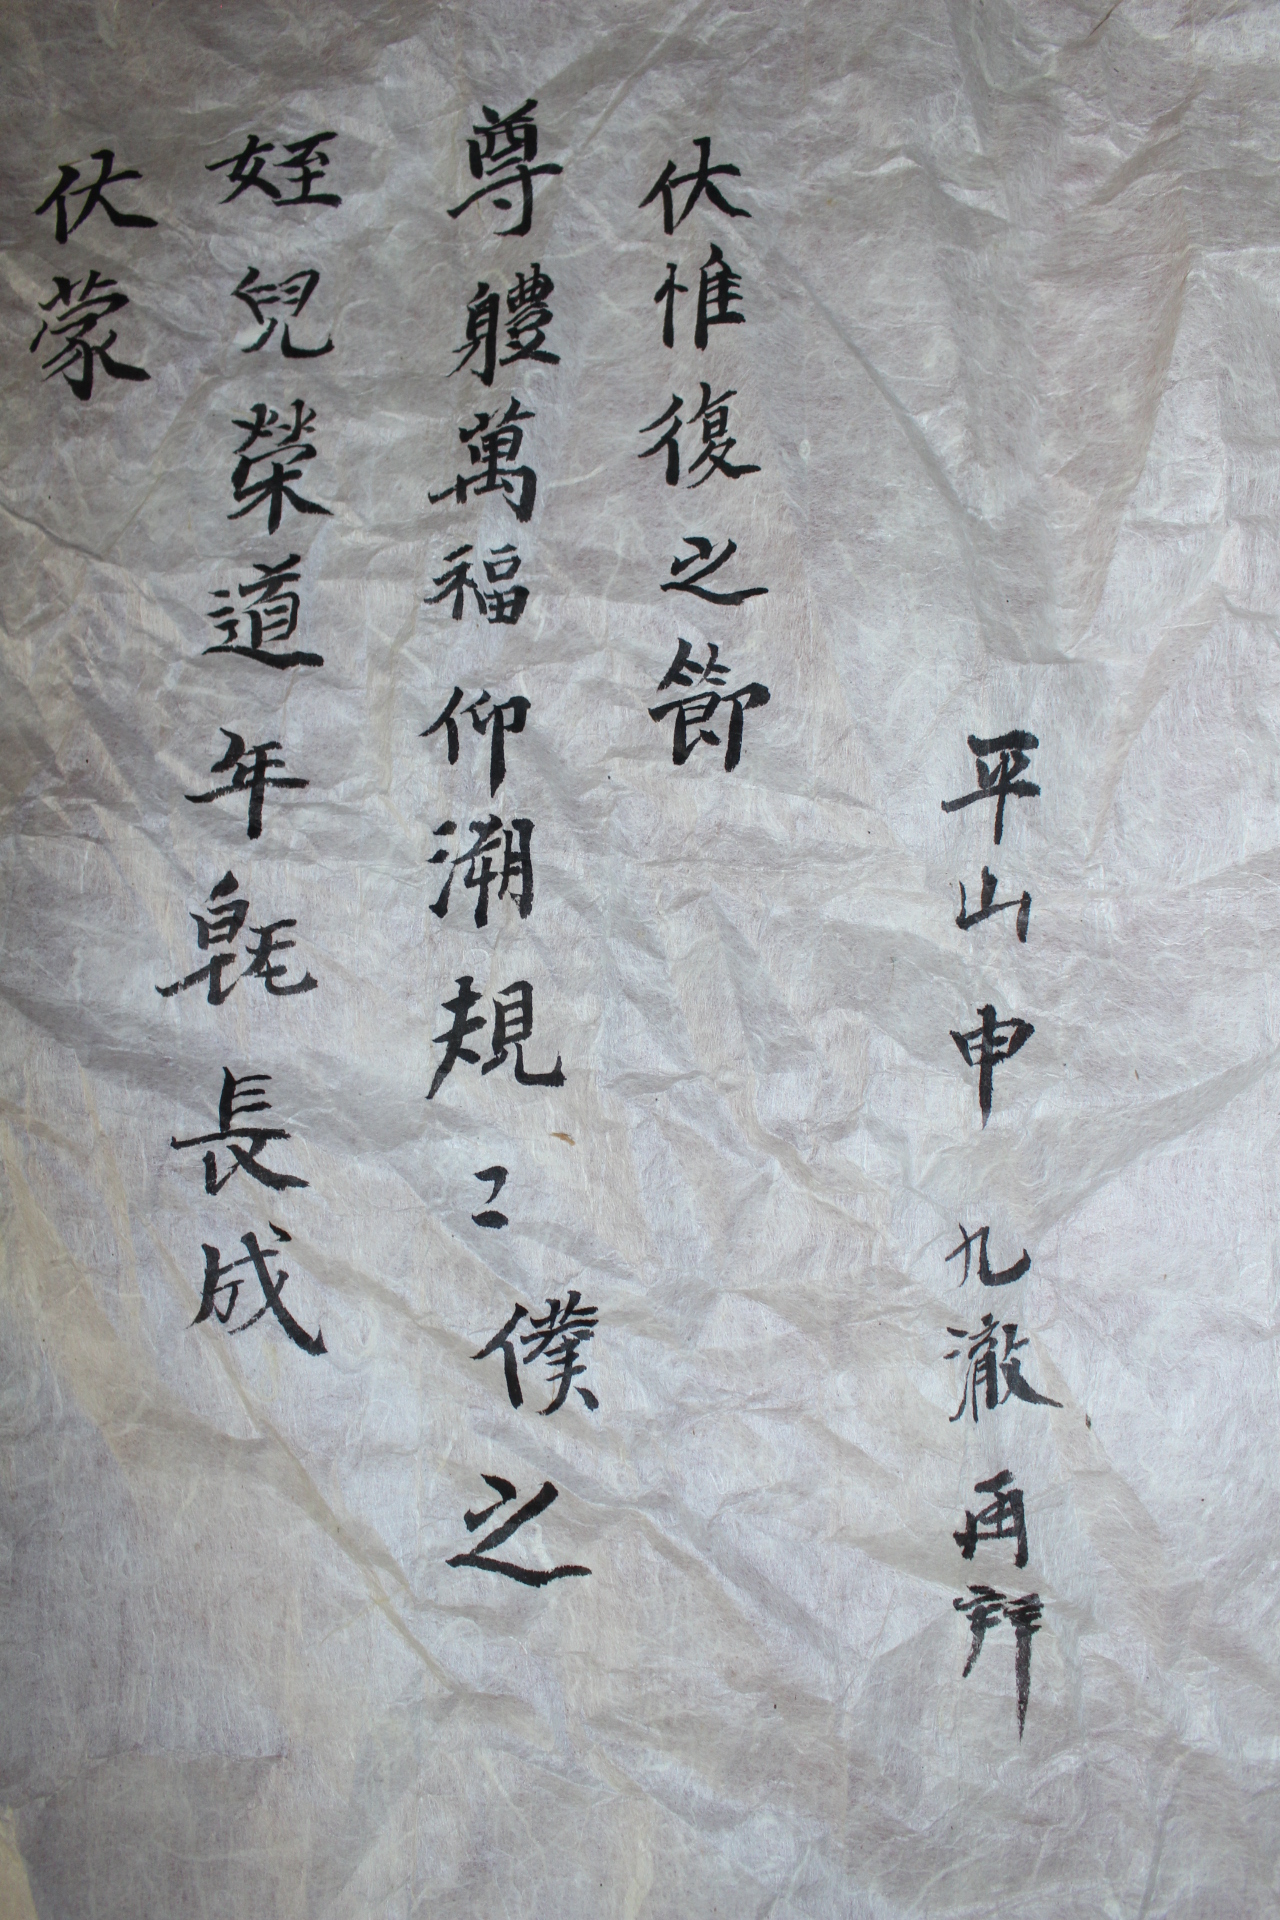 平山申九澈再拜
伏惟復之節
尊軆萬福仰溯規二僕之
姪兒榮道年旣長成
伏蒙